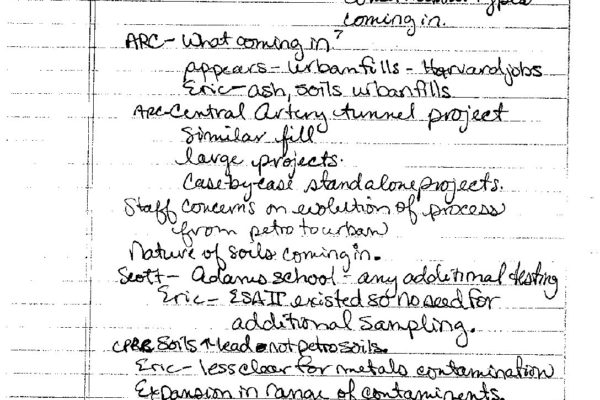 coming in.
ARC - What coming in?
appears - urban fills - Harvard jobs
Eric - ash, soils urban fills
ARC - Central Artery tunnel project
Similar fill
large projects.
Case-by-case standalone projects.
Staff concerns on evolution of process
from petro to urban
Nature of soils coming in.
Scott - Adams school - any additional testing
Eric - ESA II existed so no need for
additional sampling.
soils ↑ lead not petro soils.
Eric - less clear for metals contamination
Expansion in range of contaminents.